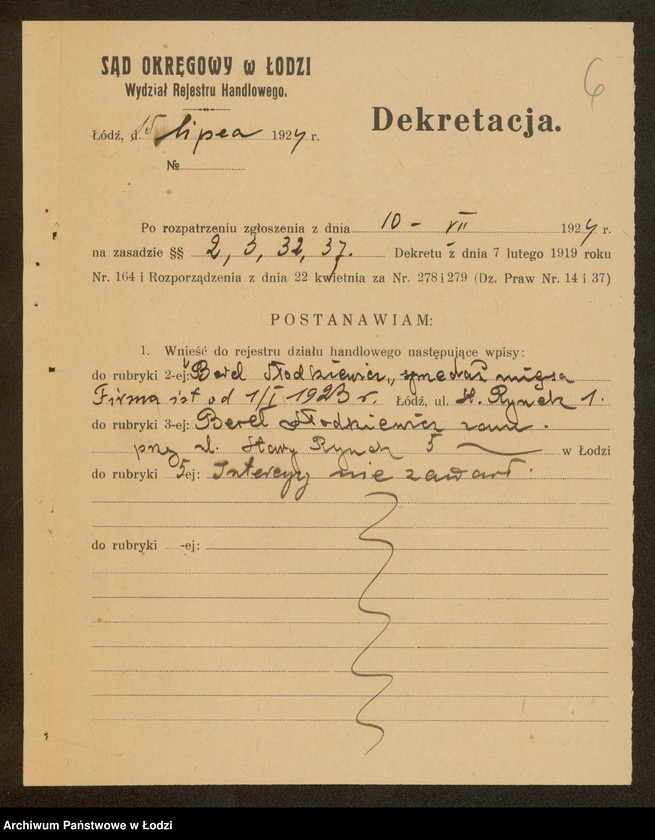 6
SĄD OKRĘGOWY w ŁODZI
Wydział Rejestru Handlowego.
Dekretacja.
Łódź, d. 15 lipca 1924 r.
№
Po rozpatrzeniu zgłoszenia z dnia 10 - VII 1924 r.
na zasadzie §§ 2, 3, 32, 37. Dekretu z dnia 7 lutego 1919 roku
Nr. 164 i Rozporządzenia z dnia 22 kwietnia za Nr. 278 i 279 (Dz. Praw Nr. 14 i 37)
POSTANAWIAM:
1. Wnieść do rejestru działu handlowego następujące wpisy:
do rubryki 2-ej: „Berel Słodkiewicz", sprzedaż mięsa
Firma ist od 1/I 1923 r. Łódź, ul. St. Rynek 1.
do rubryki 3-ej: Berel Słodkiewicz zam.
przy ul. Stary Rynek 5 w Łodzi
do rubryki 5-ej: Intercyzy nie zawarł.
do rubryki -ej:
Archiwum Państwowe w Łodzi